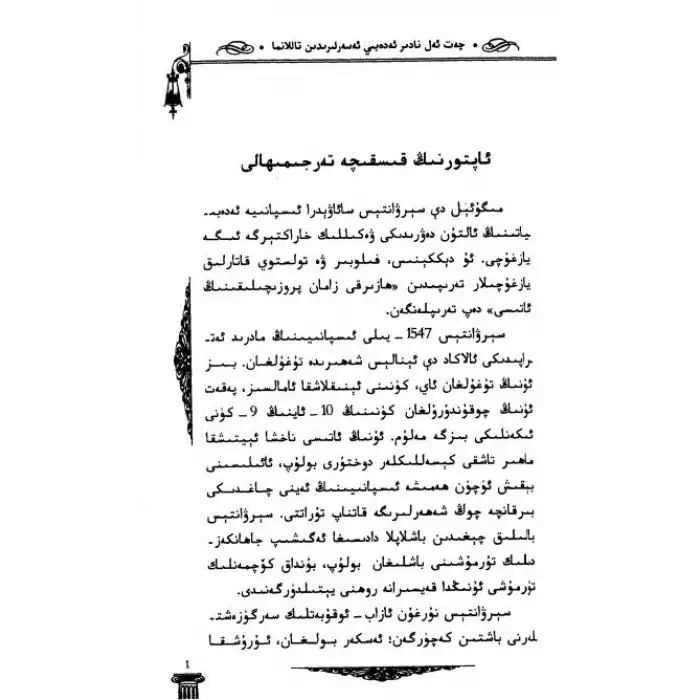 • چەت ئەل نادىر ئەدەبىي ئەسەرلىرىدىن تاللانما •
ئاپتورنىڭ قىسقىچە تەرجىمىھالى
مىگۇئېل دې سېرۋانتېس سائاۋېدرا ئىسپانىيە ئەدەبىـ
ياتىنىڭ ئالتۇن دەۋرىدىكى ۋەكىللىك خاراكتېرگە ئىگە
يازغۇچى. ئۇ دېككېنىس، فىلوبېر ۋە تولستوي قاتارلىق
يازغۇچىلار تەرىپىدىن «ھازىرقى زامان پروزىچىلىقىنىڭ
ئاتىسى» دەپ تەرىپلەنگەن.
سېرۋانتېس 1547 ـ يىلى ئىسپانىيىنىڭ مادرىد ئەتـ
راپىدىكى ئالاكاد دې ئېنالېس شەھىرىدە تۇغۇلغان. بىز
ئۇنىڭ تۇغۇلغان ئاي، كۈنىنى ئېنىقلاشقا ئامالسىز، پەقەت
ئۇنىڭ چوقۇندۇرۇلغان كۈنىنىڭ 10 ـ ئاينىڭ 9 ـ كۈنى
ئىكەنلىكى بىزگە مەلۇم. ئۇنىڭ ئاتىسى ناخشا ئېيتىشقا
ماھىر تاشقى كېسەللىكلەر دوختۇرى بولۇپ، ئائىلىسىنى
بېقىش ئۈچۈن ھەمىشە ئىسپانىيىنىڭ ئەينى چاغدىكى
بىرقانچە چوڭ شەھەرلىرىگە قاتناپ تۇراتتى. سېرۋانتېس
بالىلىق چېغىدىن باشلاپلا دادىسىغا ئەگىشىپ جاھانكەزـ
دىلىك تۇرمۇشىنى باشلىغان بولۇپ، بۇنداق كۆچمەنلىك
تۇرمۇشى ئۇنىڭدا قەيسىرانە روھنى يېتىلدۈرگەنىدى.
سېرۋانتېس نۇرغۇن ئازاب ـ ئوقۇبەتلىك سەرگۈزەشتـ
لەرنى باشتىن كەچۈرگەن؛ ئەسكەر بولغان، ئۇرۇشقا
1